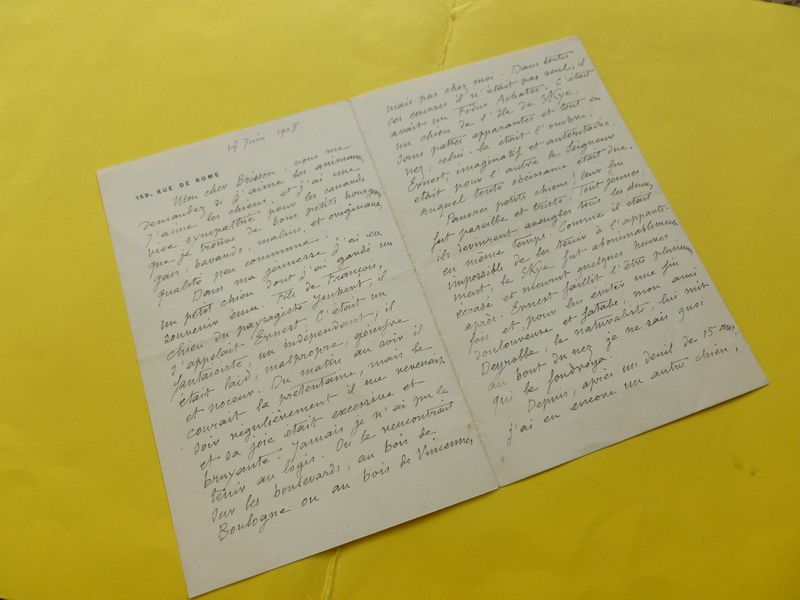 14 Juin 1908.
159, RUE DE ROME
Mon cher Brisson, vous me
demandez si j'aime les animaux,
J'aime les chiens, et j'ai une
vive sympathie pour les canards,
que je trouve de bons petits bourgeois,
gais, bavards, malins, et originaux,
qualité peu commune.
Dans ma jeunesse j'ai eu
un petit chien dont j'ai gardé un
souvenir ému. Fils de François,
chien du paysagiste Jeukens, il
s'appelait Ernest. C'était un
fantaisiste, un indépendant; il
était laid, malpropre, goinfre
et noceur. Du matin au soir il
courait la prétentaine, mais le
soir régulièrement il me revenait
et sa joie était excessive et
bruyante. Jamais je n'ai pu le
tenir au logis. On le rencontrait
sur les boulevards, au bois de
Boulogne ou au bois de Vincennes,
mais pas chez moi. Dans toutes
ces courses il n'était pas seul; il
avait un Fidus Achates. C'était
un chien de l'Ile de Skye,
sans pattes apparentes et tout en
nez; celui-là était l'ombre.
Ernest, imaginatif et autoritaire,
était pour l'autre le Seigneur
auquel toute obéissance était due.
Pauvres petits chiens! leur fin
fut pareille et triste. Tout jeunes,
ils devinrent aveugles tous les deux,
en même temps. Comme il était
impossible de les tenir à l'apparte-
ment, le Skye fut abominablement
écrasé et mourut quelques heures
après. Ernest faillit l'être plusieurs
fois et, pour lui éviter une fin
douloureuse et fatale, mon ami
Deyrolle, le naturaliste, lui mit
au bout du nez je ne sais quoi
qui le foudroya.
Depuis, après un deuil de 15 ans,
j'ai eu encore un autre chien,